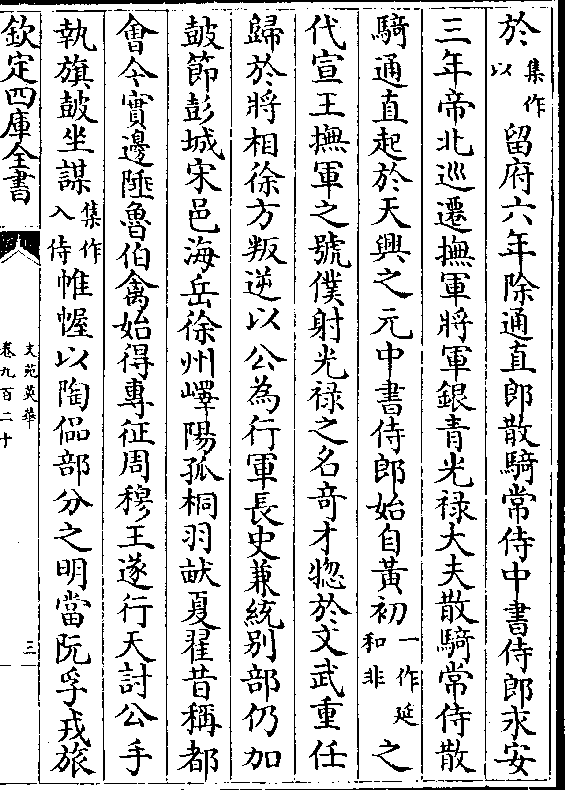 於集作以留府六年除通直郎散騎常侍中書侍郎永安
三年帝北巡遷撫軍將軍銀青光禄大夫散騎常侍散
騎通直起於天興之元中書侍郎始自黃初一作延和非之
代宣王撫軍之號僕射光禄之名竒才惣於文武重任
歸於將相徐方叛逆以公為行軍長史兼統别部仍加
鼓節彭城宋邑海岳徐州嶧陽孤桐羽畎夏翟昔稱都
會今實邊陲魯伯禽始得專征周穆王遂行天討公手
執旗鼓坐謀集作入侍帷幄以陶侃部分之明當阮孚戎旅
欽定四庫全書
文苑英華
卷九百二十
三